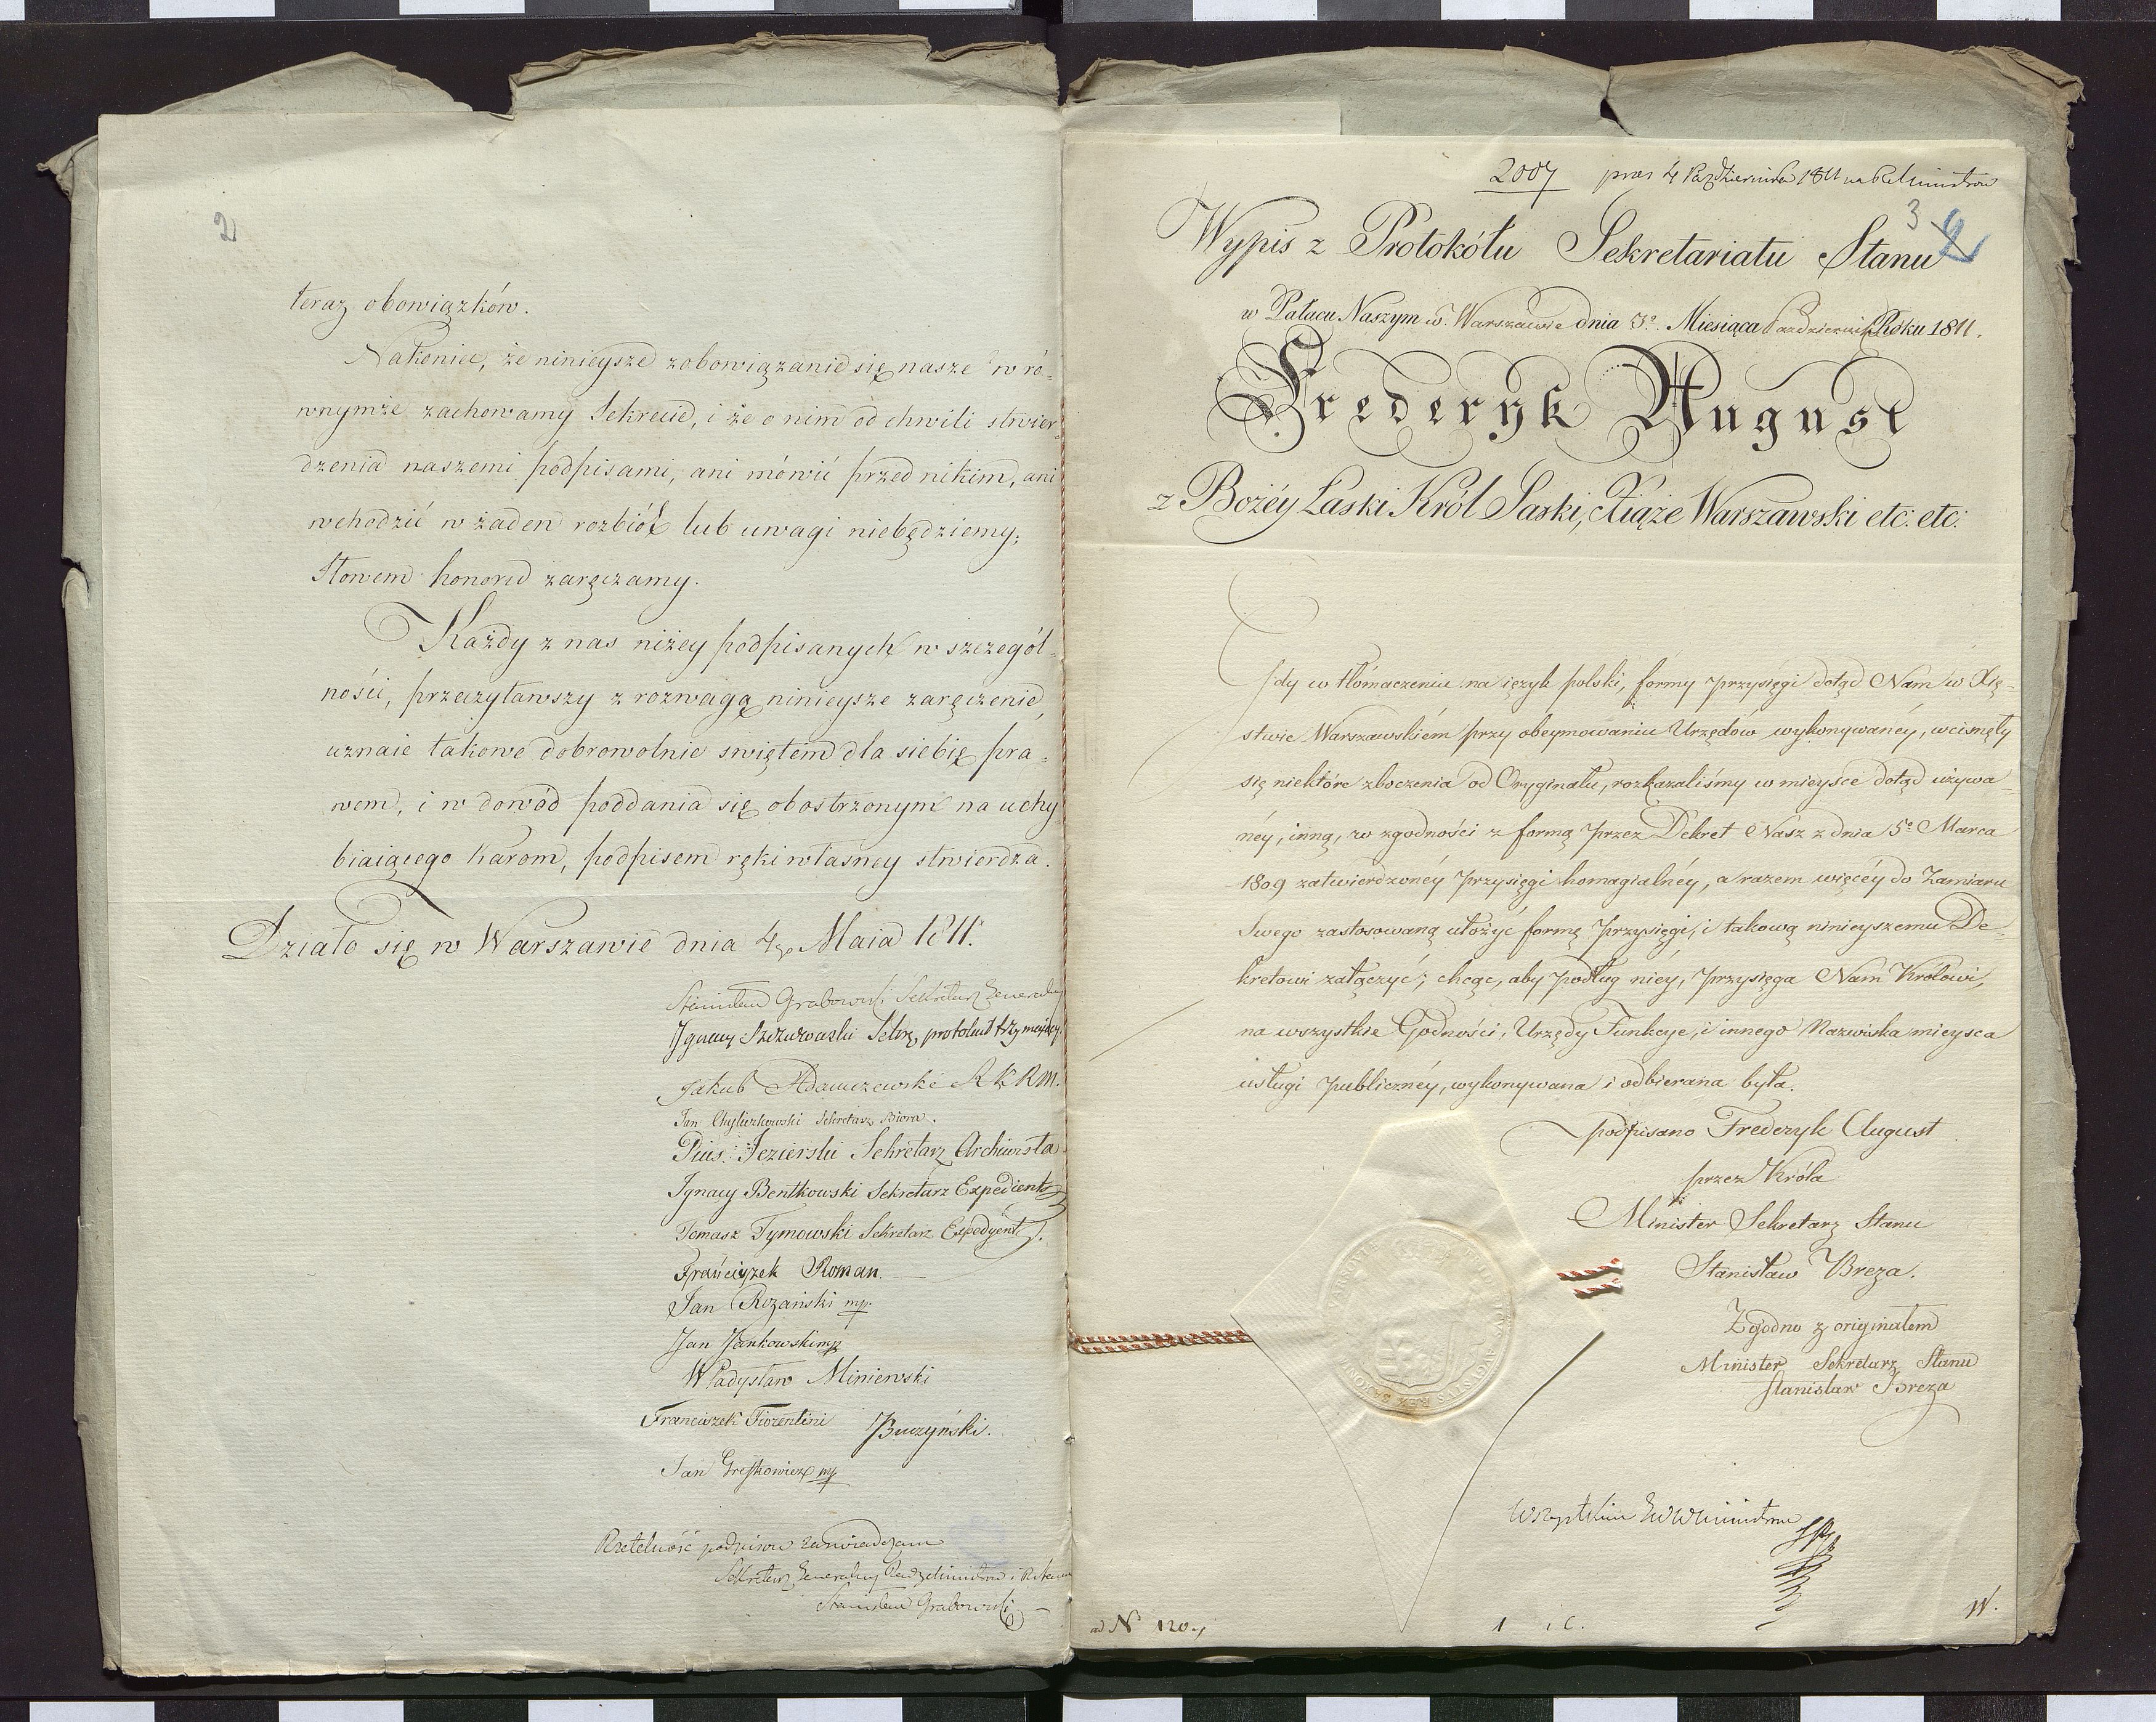 2
teraz obowiązków.
Nakoniec, że ninieysze zobowiązanie się nasze w ró=
wnymże zachowamy Sekrecie, i że o nim od chwili stwier=
dzenia naszemi podpisami, ani mówić przed nikim, ani
wchodzić w żaden rozbiór lub uwagi niebędziemy;
Słowem honoru zaręczamy.
Każdy z nas niżey podpisanych w szczegól=
ności, przeczytawszy z rozwagą ninieysze zaręczenie,
uznaie takowe dobrowolnie swiętem dla siebie pra=
wem, i w dowód poddania się obostrzonym na uchy
biaiącego karom, podpisem ręki własney stwierdza.
Działo się w Warszawie dnia 4go Maia 1811.
Stanisław Grabowski Sekretarz Generalny
Ignacy Szczurowski Sekrę. protokuł trzymaiący.
Jakub Adamczewski S K R M.
Jan Chyliczkowski Sekretarz Biora.
Pius Jezierski Sekretarz Archiwista
Ignacy Bentkowski Sekretarz Expedient
Tomasz Tymowski Sekretarz Expedyent.
Franciszek Roman.
Jan Rozański mp.
Jan Jankowski mp
Władysław Miniewski
Franciszek Fiorentini Buczyński.
Jan Greszkowicz mp
Rzetelność podpisów zaświadczam
Sekretarz Generalny Rady Ministrów i R. Stanu
Stanisław Grabowski
2007 prae 4 Października 1811 na R. Ministrów
3 2
Wypis z Protokółu Sekretariatu Stanu
w Pałacu Naszym w Warszawie dnia 3o. Miesiąca Października Roku 1811.
Frederyk August
z Bożéy Łaski Król Saski, Xiąże Warszawski etc: etc:
Gdy w tłómaczeniu na ięzyk polski, formy przysięgi dotąd Nam w Xię=
stwie Warszawskiém przy obeymowaniu Urzędów wykonywanéy, wcisnęły
się niektóre zboczenia od Oryginału, rozkazaliśmy w mieysce dotąd używa=
néy, inną, w zgodności z formą przez Dekret Nasz z dnia 5o Marca
1809 zatwierdzonéy przysięgi homagialnéy, a razem więcéy do Zamiaru
Swego zastosowaną ułożyć formę przysięgi, i takową ninieyszemu De=
kretowi załączyć; chcąc, aby podług niéy, przysięga Nam Królowi,
na wszystkie Godności, Urzędy Funkcye, i innego Nazwiska mieysca
usługi publicznéy, wykonywana i odbierana była.
podpisano Frederyk August
przez Króla
Minister Sekretarz Stanu
Stanisław Breza.
Zgodno z originałem
Minister Sekretarz Stanu
Stanisław Breza
Wszystkim Ministrom
ad No 120.
1 i C.
W.